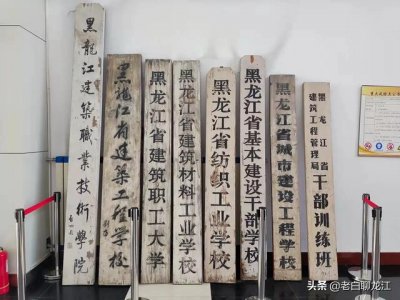 黑龍江建築職業技術學院
黑龙江省建筑工程学校
黑龙江省建筑职工大学
黑龙江省建筑材料工业学校
黑龙江省纺织工业学校
黑龙江省基本建设干部学校
黑龙江省城市建设工程学校
黑龙江省
建筑工程管理局
干部训练班
头条 @老白聊龙江